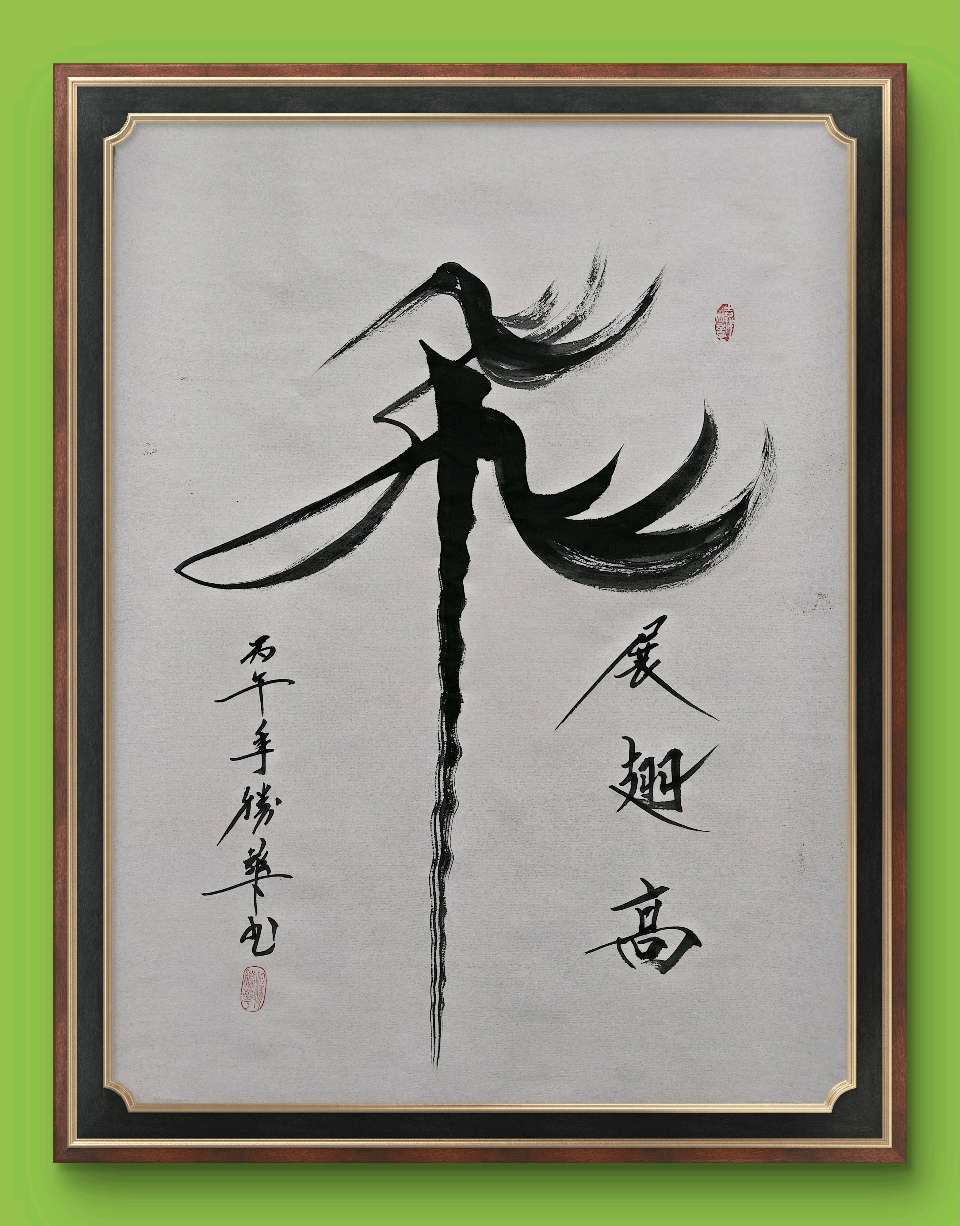 展翅高
飛
丙午年勝華书